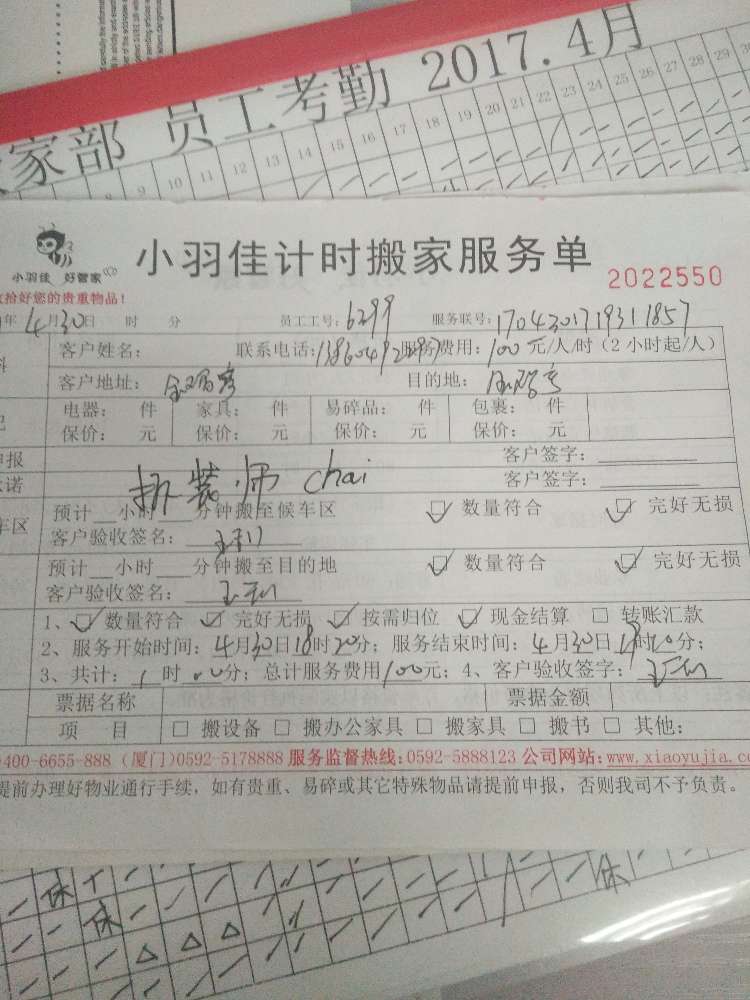 家部 员工考勤 2017.4月
9 10 11 12 13 14 15 16 17 18 19 20 21 22 23 24 25 26 27 28 29
小羽佳 好管家
小羽佳计时搬家服务单
2022550
拾好您的贵重物品!
年4月30日 时 分 员工工号:6299 服务联号:1704301719311857
客户姓名: 联系电话: 服务费用:100元/人/时(2小时起/人)
客户地址: 目的地:
电器: 件 家具: 件 易碎品: 件 包裹: 件
保价: 元 保价: 元 保价: 元 保价: 元
申报 客户签字:
诺 客户签字:
拆装师 chai
车区 预计 小时 分钟搬至候车区 数量符合 完好无损
客户验收签名:
预计 小时 分钟搬至目的地 数量符合 完好无损
客户验收签名:
1、 数量符合 完好无损 按需归位 现金结算 转账汇款
2、服务开始时间:4月30日18时20分;服务结束时间:4月30日19时20分;
3、共计:1时00分;总计服务费用100元;4、客户验收签字:
票据名称 票据金额
项 目 搬设备 搬办公家具 搬家具 搬书 其他:
400-6655-888 (厦门)0592-5178888 服务监督热线:0592-5888123 公司网站:www.xiaoyujia.co
提前办理好物业通行手续,如有贵重、易碎或其它特殊物品请提前申报,否则我司不予负责。
休
休
休